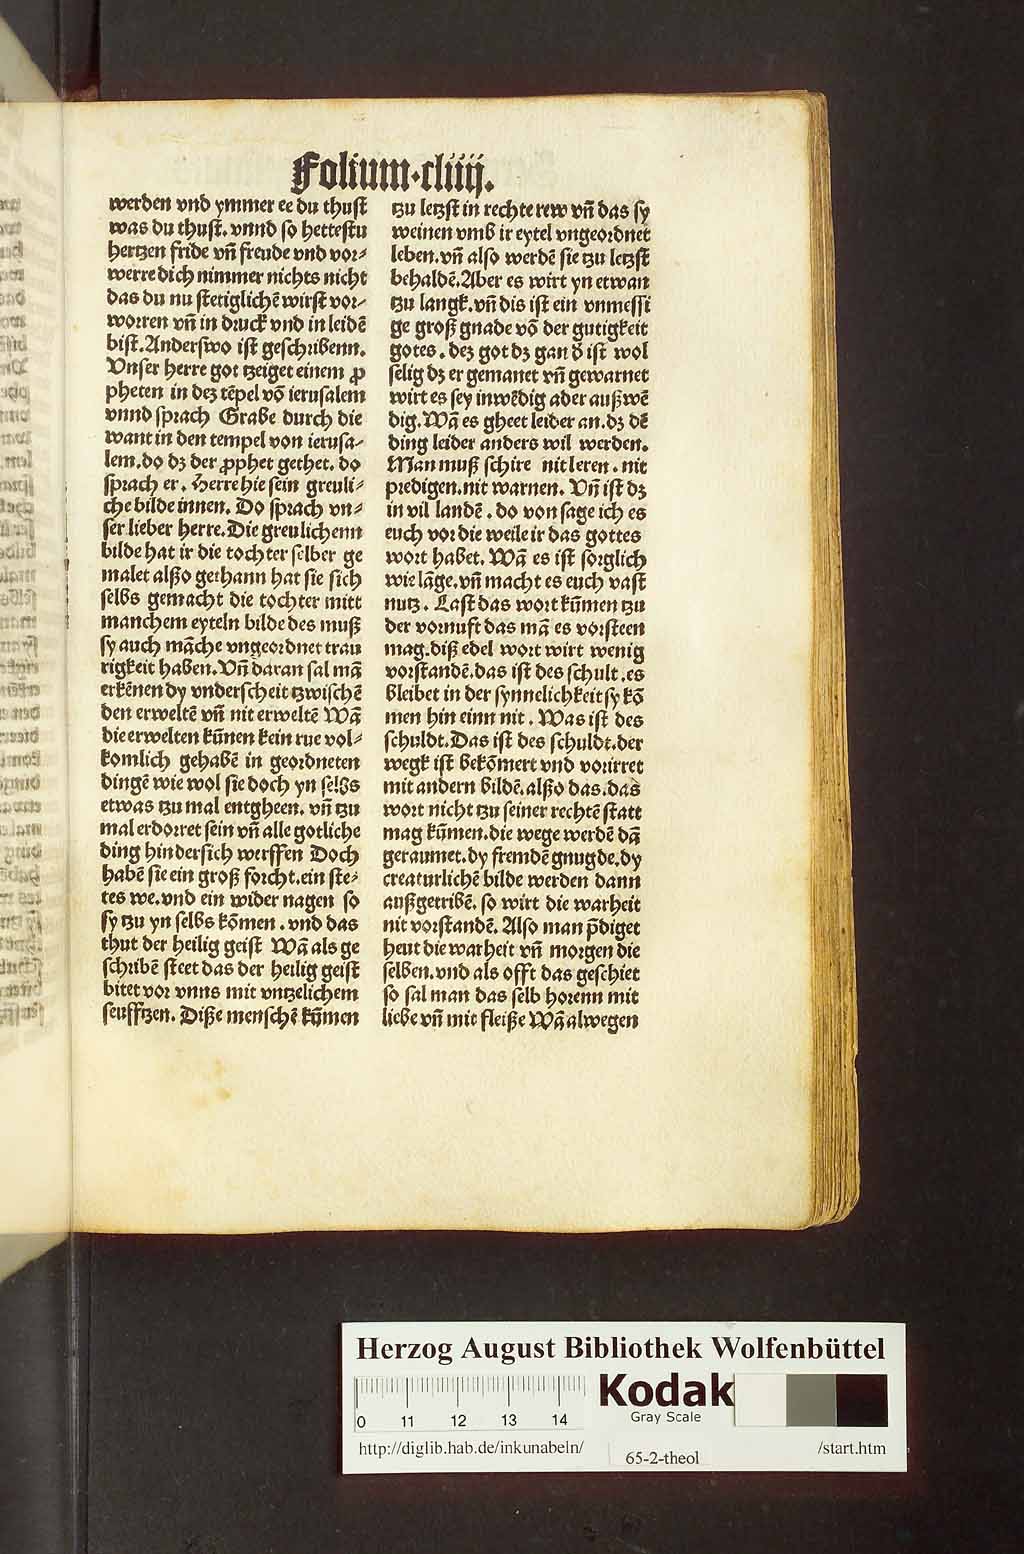 Folium·cliiij.
werden vnd ymmer ee du thust
was du thust. vnnd so hettestu
hertzen fride vn̄ freude vnd vor⸗
werre dich nimmer nichts nicht
das du nu stetiglichē wirst vor⸗
worren vn̄ in druck vnd in leidē
bist. Anderswo ist geschribenn.
Vnser herre got tzeiget einem ꝓ
pheten in dez tēpel vō ierusalem
vnnd sprach Grabe durch die
want in den tempel von ierusa⸗
lem. do dz der ꝓphet gethet. do
sprach er. Herre hie sein greuli⸗
che bilde innen. Do sprach vn⸗
ser lieber herre. Die greulichenn
bilde hat ir die tochter selber ge
malet alßo gethann hat sie sich
selbs gemacht die tochter mitt
manchem eyteln bilde des muß
sy auch māche vngeordnet trau
rigkeit haben. Vn̄ daran sal mā
erkēnen dy vnderscheit tzwischē
den erweltē vn̄ nit erweltē Wā
die erwelten kūnen kein rue vol⸗
komlich gehabē in geordneten
dingē wie wol sie doch yn selbs
etwas tzu mal entgheen. vn̄ tzu
mal erdorret sein vn̄ alle gotliche
ding hindersich werffen Doch
habē sie ein groß forcht. ein ste⸗
tes we. vnd ein wider nagen so
sy tzu yn selbs kōmen . vnd das
thut der heilig geist Wā als ge
schribē steet das der heilig geist
bitet vor vnns mit vntzelichem
seufftzen. Diße menschē kūmen
tzu letzst in rechte rew vn̄ das sy
weinen vmb ir eytel vngeordnet
leben. vn̄ also werdē sie tzu letzst
behaldē. Aber es wirt yn etwan
tzu langk. vn̄ dis ist ein vnmessi
ge groß gnade vō der gutigkeit
gotes . dez got dz gan d̄ ist wol
selig dz er gemanet vn̄ gewarnet
wirt es sey inwēdig ader auß wē
dig. Wā es gheet leider an. dz dē
ding leider anders wil werden.
Man muß schire nit leren . nit
predigen. nit warnen. Vn̄ ist dz
in vil landē . do von sage ich es
euch vor die weile ir das gottes
wort habet. Wā es ist sorglich
wie lāge. vn̄ macht es euch vast
nutz . Last das wort kūmen tzu
der vornuft das mā es vorsteen
mag. diß edel wort wirt wenig
vorstandē. das ist des schult . es
bleibet in der synnelichkeit sy kō
men hin einn nit . Was ist des
schuldt. Das ist des schuldt. der
wegk ist bekōmert vnd vorirret
mit andern bildē. alßo das. das
wort nicht tzu seiner rechtē statt
mag kūmen. die wege werdē dā
geraumet. dy fremdē gnugde. dy
creaturlichē bilde werden dann
außgetribē. so wirt die warheit
nit vorstandē. Also man p̄diget
heut die warheit vn̄ morgen die
selben. vnd als offt das geschiet
so sal man das selb horenn mit
liebe vn̄ mit fleiße Wā alwegen
Herzog August Bibliothek Wolfenbüttel
0 11 12 13 14
Kodak
Gray Scale
http://diglib.hab.de/inkunabeln/
65-2-theol
/start.htm